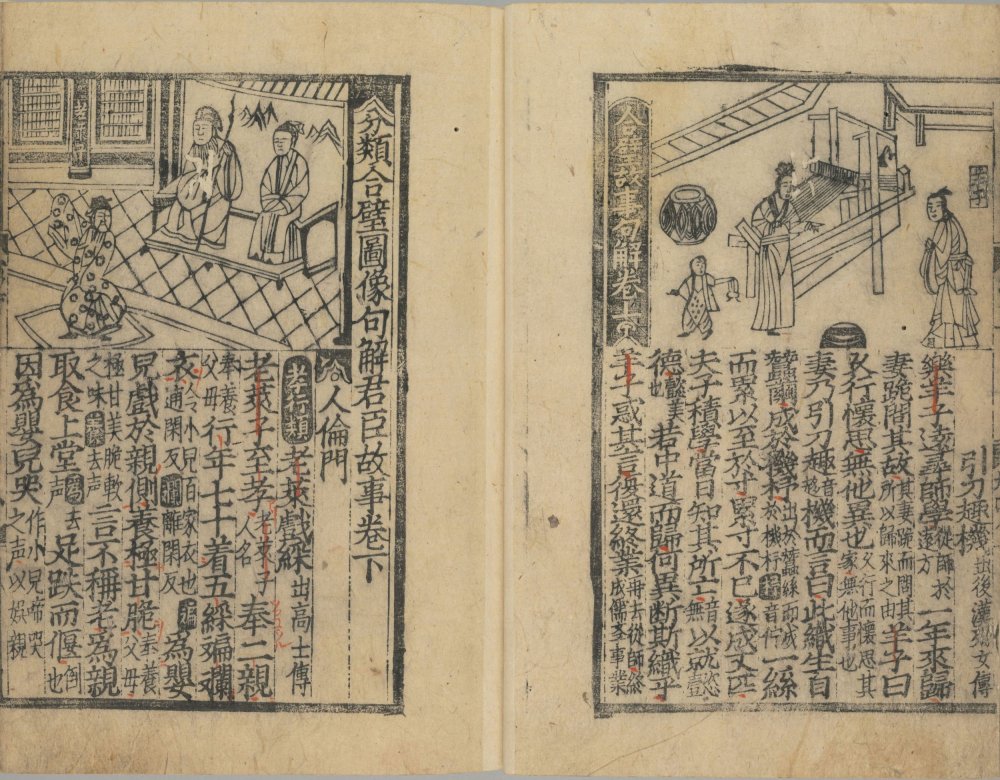 引刀趍機 出後漢列女傳
樂羊子遠尋師學 從師於遠方 一年來歸
妻跪問其故 其妻跪而問其所以歸來之由 羊子曰
久行懷思無他異也 久行而懷思其家無他事也
妻乃引刀趍 機而言曰此織生自
蠶繭成於機杼 出於蠶絲而成於機杼 音佇 一絲
而累以至於寸累寸不已遂成丈匹
夫子積學當日知其所亡 音無 以就懿
德 懿美也 若中道而歸何異斷斯織乎
羊子感其言復還終業 再去從師終成儒者事業
合璧故事句解卷上
羊子
分類合璧圖像句解君臣故事卷下
人倫門
孝行類 老萊戲綵 出高士傳
老萊子至孝 老萊子人名 奉二親
奉養父母 行年七十着五綵斒斕
衣 小兒百家衣也 斒 逋閑反 斕 離閑反 為嬰
兒戲於親側養極甘脆 養父母極甘美脆軟
之味 養 去声 言不稱老為親
取食上堂 去声 足跌而偃 倒也
因為嬰兒哭 作小兒啼哭之声以娱親